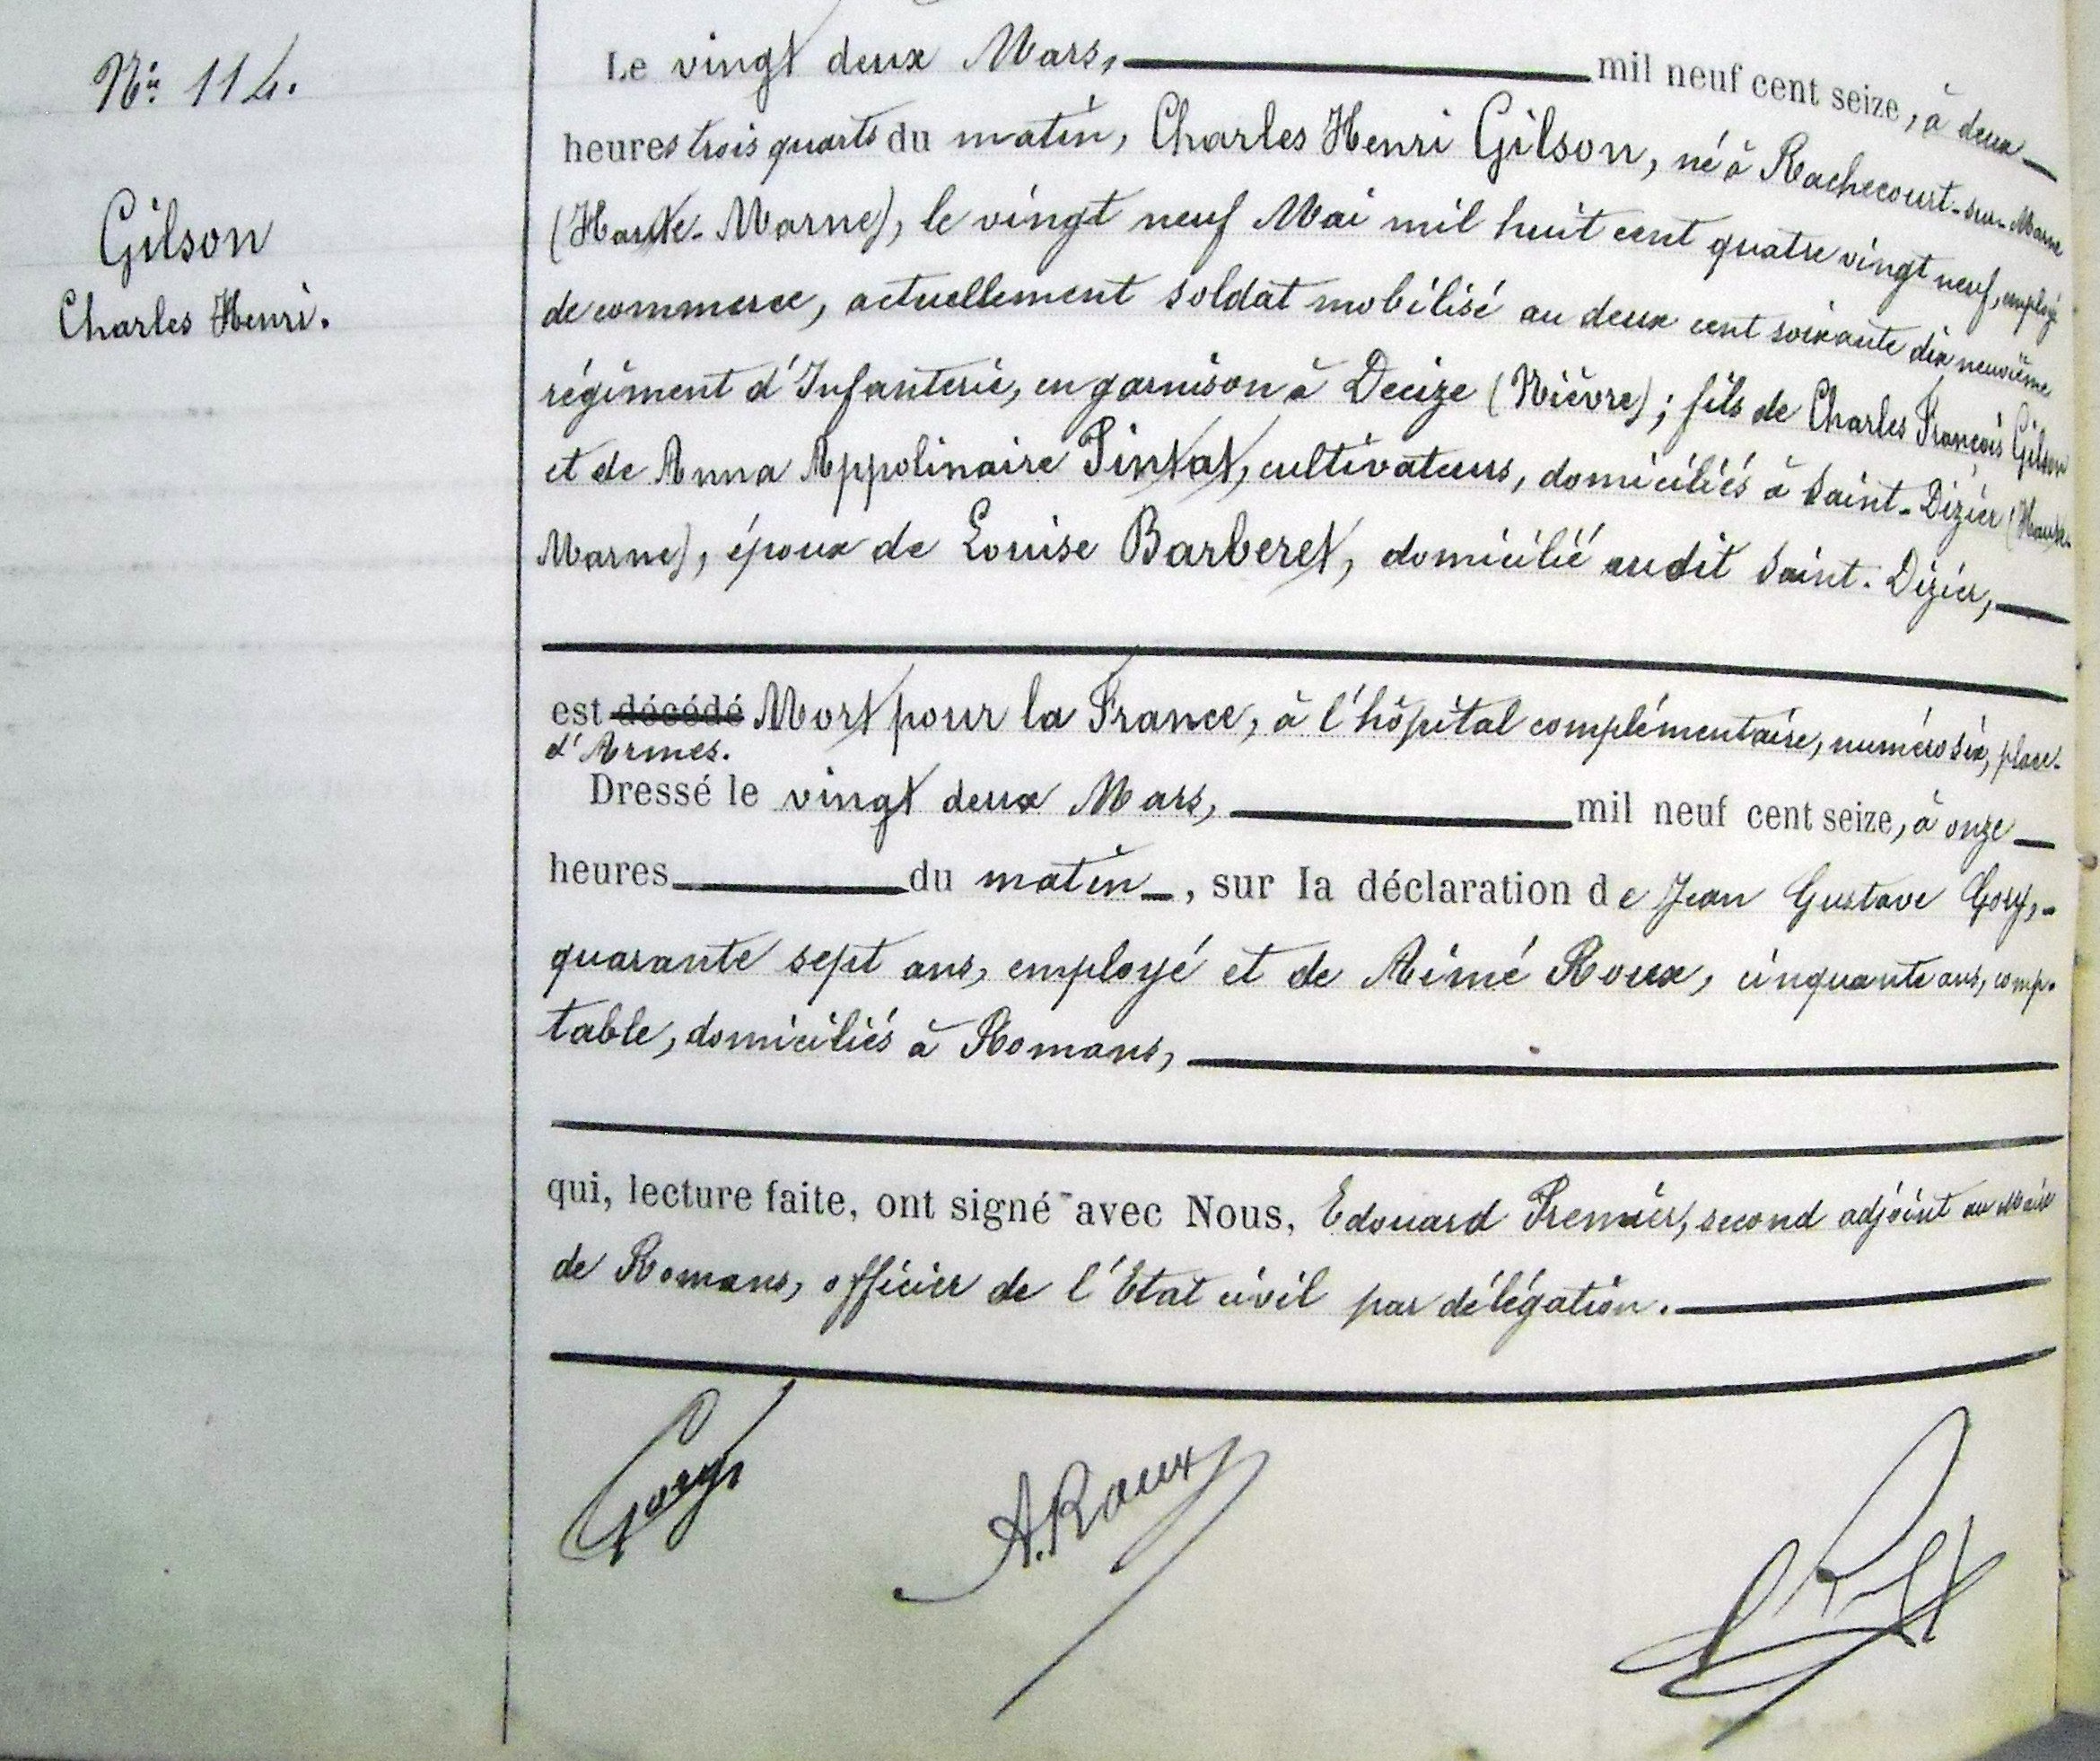 N° 114.
Gilson
Charles Henri.
Le vingt deux Mars, mil neuf cent seize, à deux
heures trois quarts du matin, Charles Henri Gilson, né à Rachecourt-sur-Marne
(Haute-Marne), le vingt neuf Mai mil huit cent quatre vingt neuf, employé
de commerce, actuellement soldat mobilisé au deux cent soixante dix neuvième
régiment d'Infanterie, en garnison à Decize (Nièvre); fils de Charles François Gilson
et de Anna Appolinaire Pintat, cultivateurs, domiciliés à Saint-Dizier (Haute-
Marne), époux de Louise Barberet, domicilié audit Saint-Dizier,
est décédé Mort pour la France, à l'hôpital complémentaire, numéro six, place
d'Armes.
Dressé le vingt deux Mars, mil neuf cent seize, à onze
heures du matin, sur la déclaration de Jean Gustave Gory,
quarante sept ans, employé et de Aimé Roux, cinquante ans, comp-
table, domiciliés à Romans,
qui, lecture faite, ont signé avec Nous, Edouard Premier, second adjoint au Maire
de Romans, officier de l'Etat civil par délégation.
Gory
A. Roux